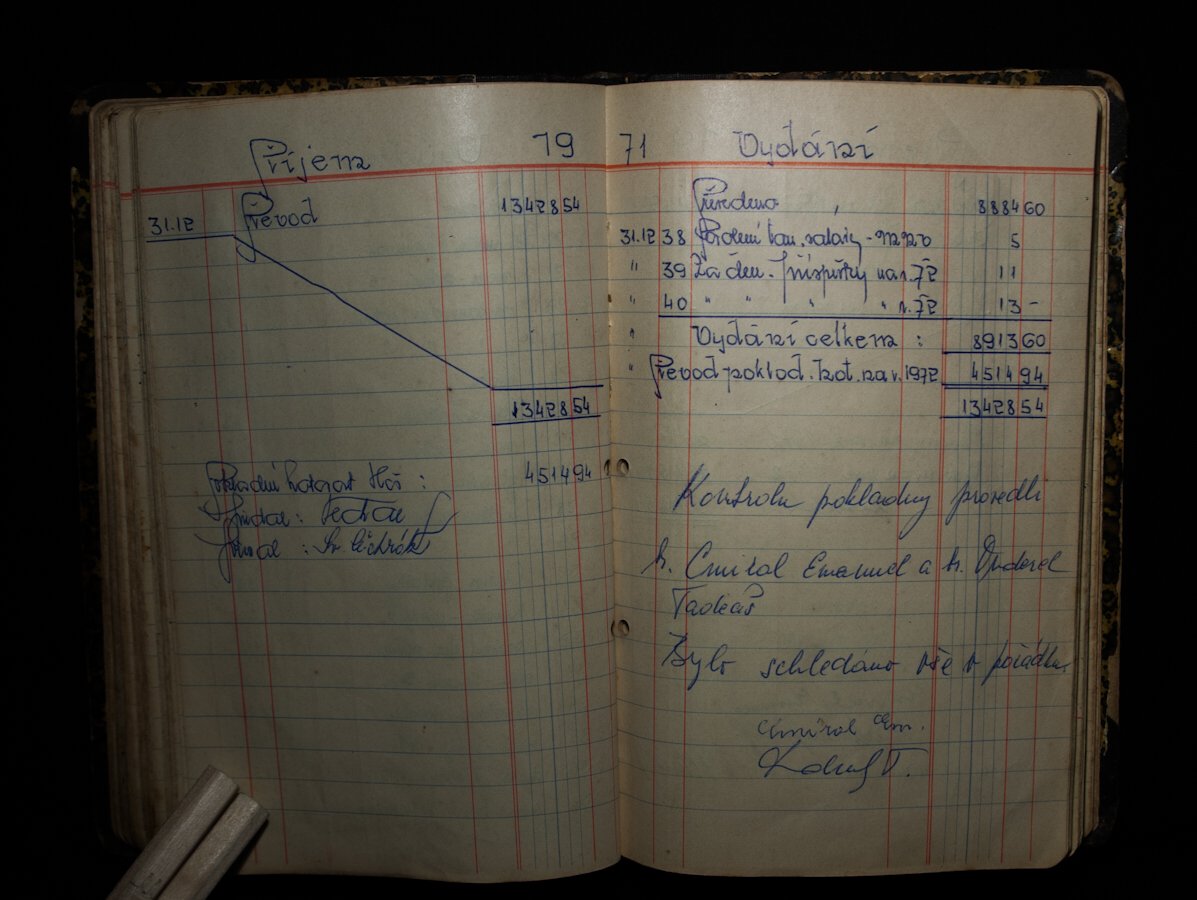 Příjem 19
31.12 Převod 13428 54
13428 54
Pokladní hotovost Kčs : 4514 94
Předal :
Přijal :
71 Vydání
Převedeno 8884 60
31.12 38 5
" 39 Za člen. příspěvky na r. 72 11
" 40 " " " " r. 72 13 -
" Vydání celkem : 8913 60
" Převod poklad. hot. na r. 1972 4514 94
13428 54
Kontrolu pokladny provedli
Cmiral Emanuel a
Tadeáš
Bylo schledáno vše v pořádku
Cmiral Em.